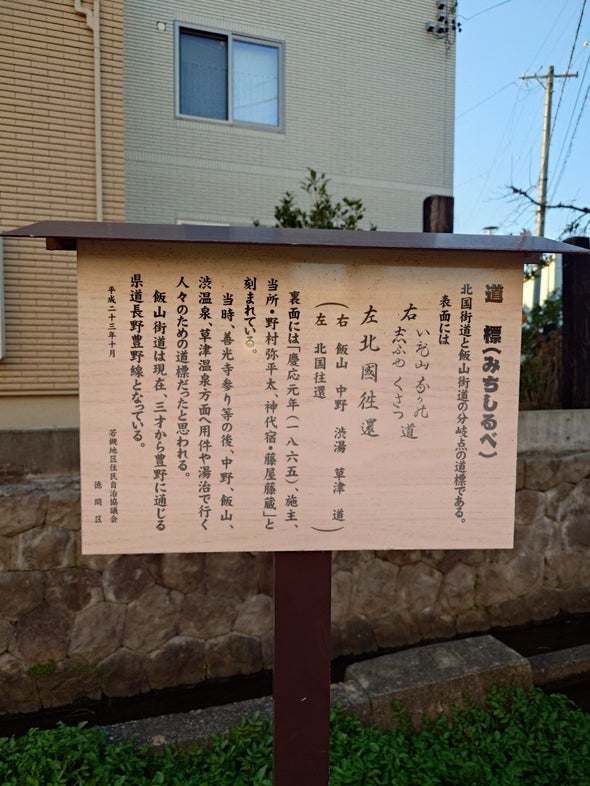 道標(みちしるべ)
北国街道と飯山街道の分岐点の道標である。
表面には
右 いひ山 なか乃 志ふゆ くさつ 道
左北國徃還
(右 飯山 中野 渋湯 草津 道)
(左 北国往還)
裏面には「慶応元年(一八六五)、施主、
当所・野村弥平太、神代宿・藤屋藤蔵」と
刻まれている。
当時、善光寺参り等の後、中野、飯山、
渋温泉、草津温泉方面へ用件や湯治で行く
人々のための道標だったと思われる。
飯山街道は現在、三才から豊野に通じる
県道長野豊野線となっている。
平成二十三年十月
若槻地区住民自治協議会
徳間区